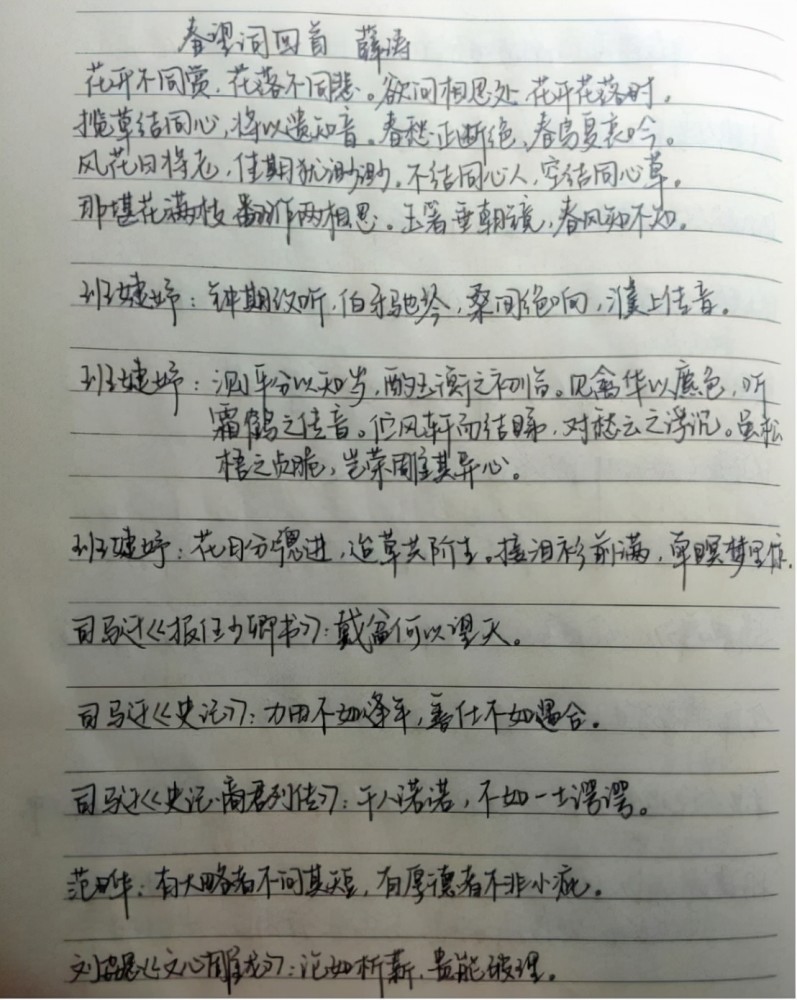 春望词四首 薛涛
花开不同赏,花落不同悲。欲问相思处 花开花落时。
揽草结同心,将以遗知音。春愁正断绝,春鸟复哀吟。
风花日将老,佳期犹渺渺。不结同心人,空结同心草。
那堪花满枝 翻作两相思。玉箸垂朝镜,春风知不知。
班婕妤:钟期改听,伯牙驰琴,桑间绝响,濮上佳音。
班婕妤:测平分以知岁,酌玉衡之初临。见禽华以麃色,听
霜鹤之佳音。伫风轩而结睇,对愁云之浮沉。虽松
梧之贞脆,岂荣雕其异心。
班婕妤:花月分骢进,边草共阶生。接泪衫前满,单瞑梦里惊。
司马迁《报任少卿书》:戴盆何以望天。
司马迁《史记》:力田不如逢年,善仕不如遇合。
司马迁《史记·商君列传》:千人诺诺,不如一士谔谔。
范晔:有大略者不问其短,有厚德者不非小疵。
刘勰《文心雕龙》:论如析薪,贵能破理。